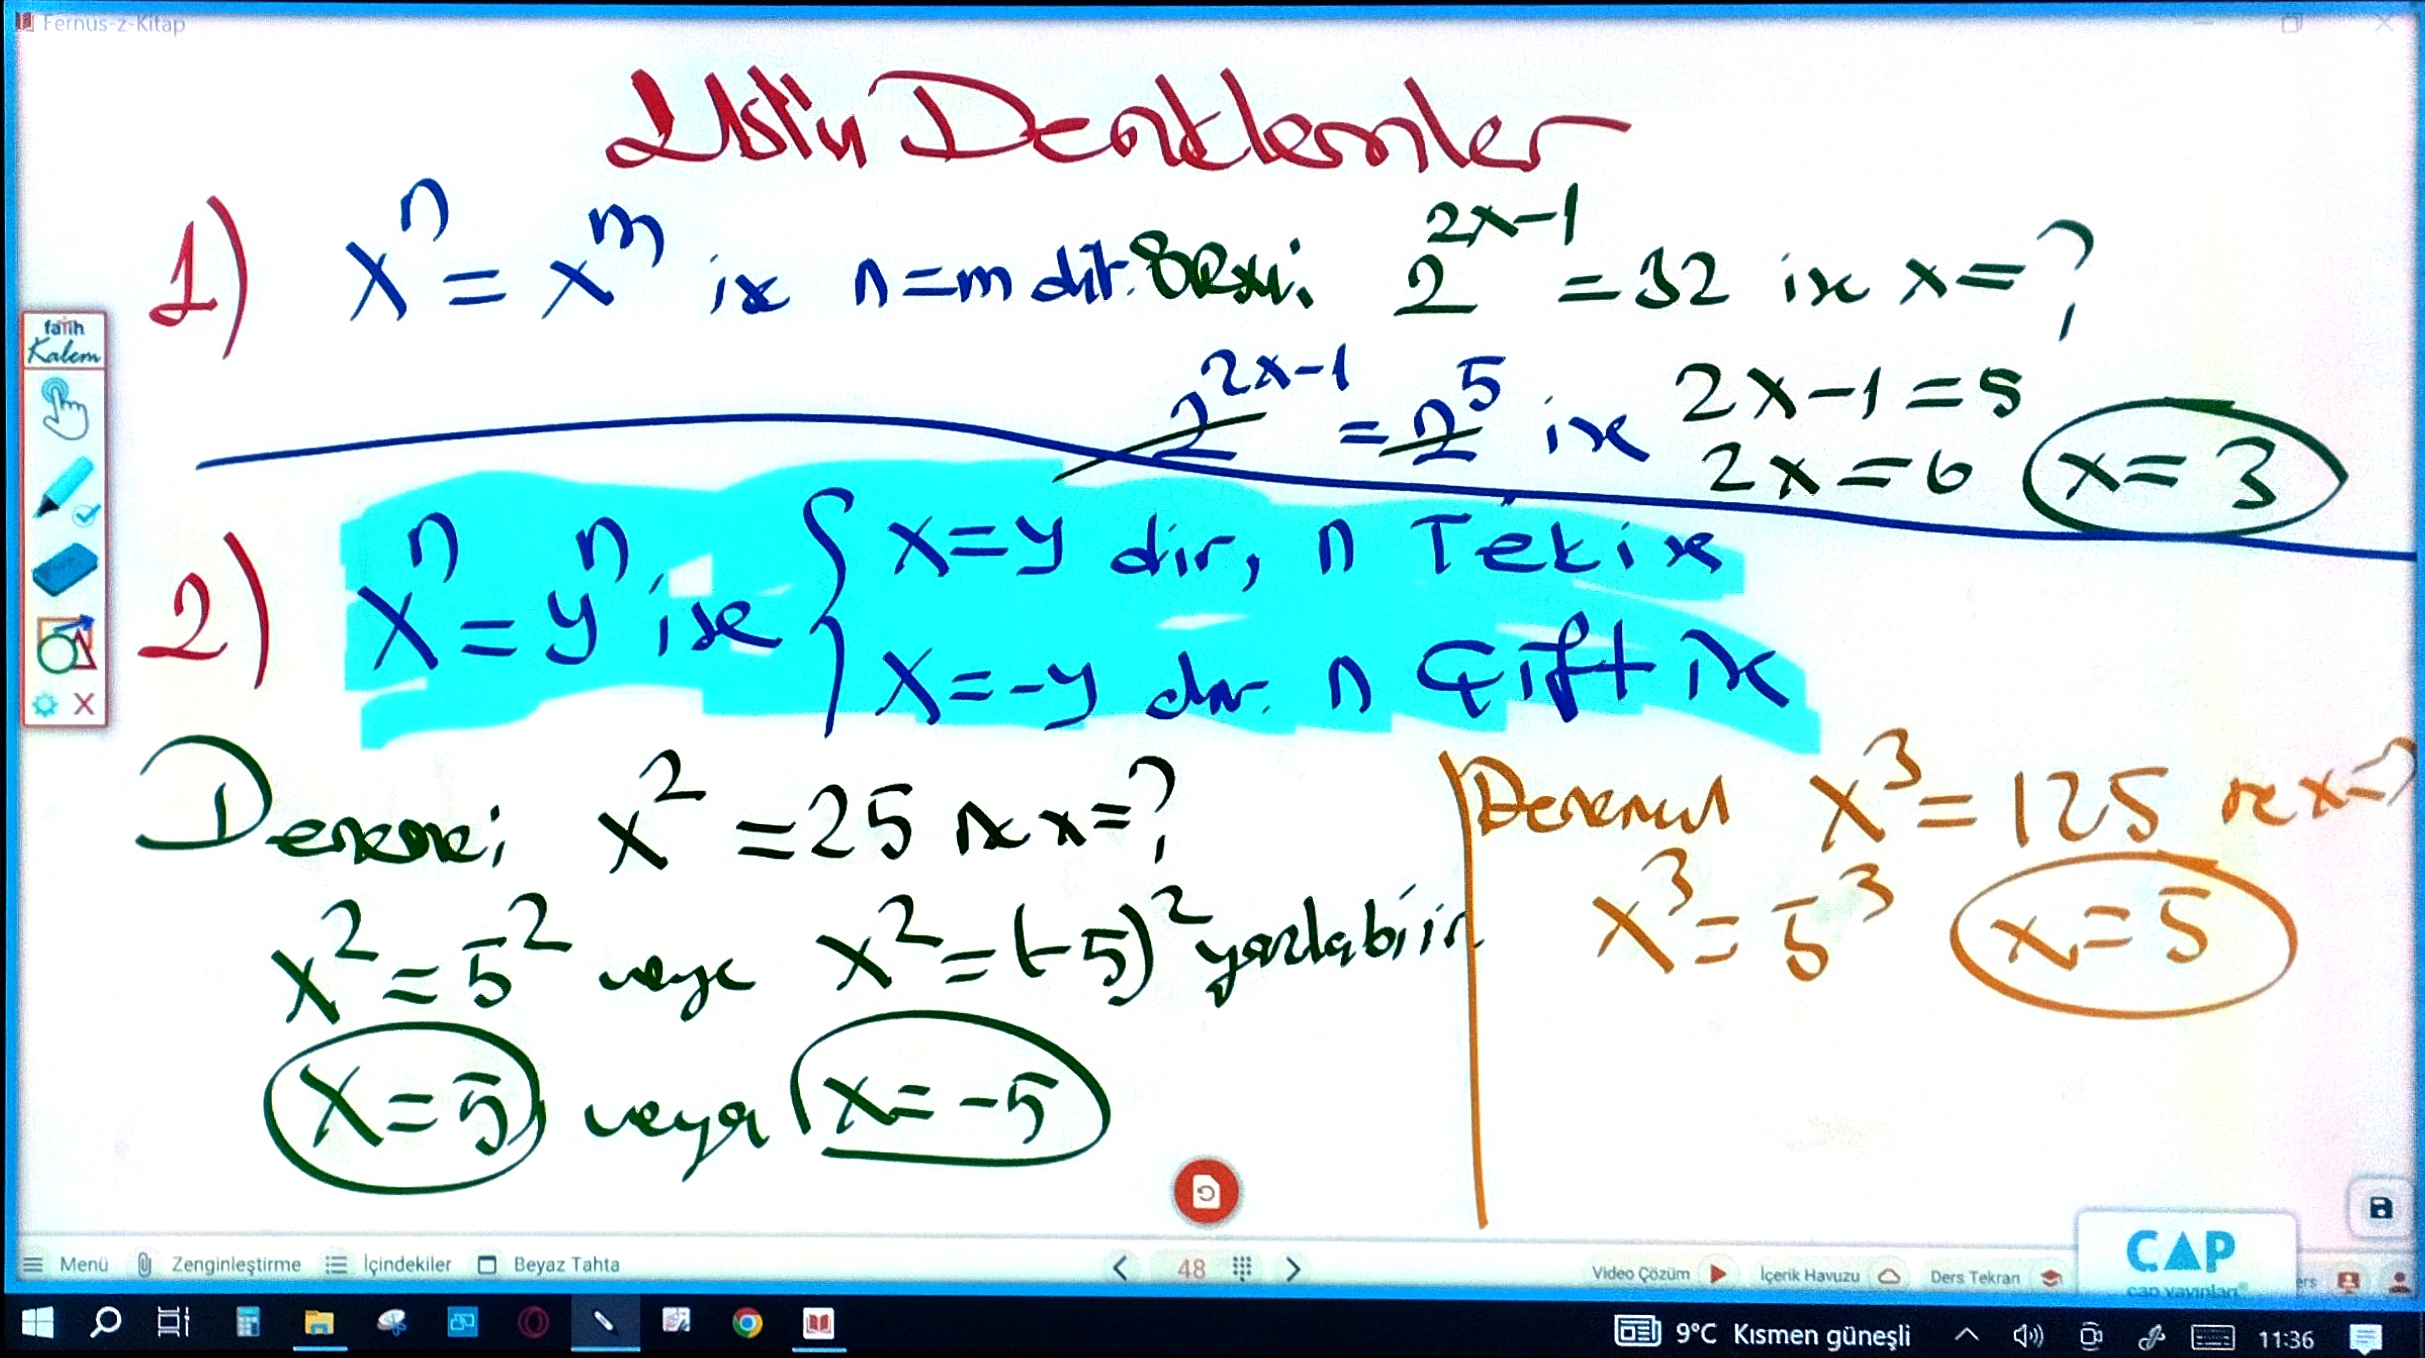 Fernus-z-Kitap
Üstlü Denklemler
1) xⁿ = xᵐ ise n=m dir. Örnek: 2²ˣ⁻¹ = 32 ise x=?
2²ˣ⁻¹ = 2⁵ ise 2x-1=5
2x=6 x=3
2) xⁿ = yⁿ ise { x=y dir, n Tek ise
x=-y dir. n Çift ise
fatih
Kalem
x² = 25 ise x=?
x² = 5² veya x² = (-5)²
x=5 veya x=-5
x³ = 125 ise x=?
x³ = 5³ x=5
Menü Zenginleştirme İçindekiler Beyaz Tahta 48 Video Çözüm İçerik Havuzu Ders Tekrarı
CAP
cap yayınları
9°C Kısmen güneşli 11:36